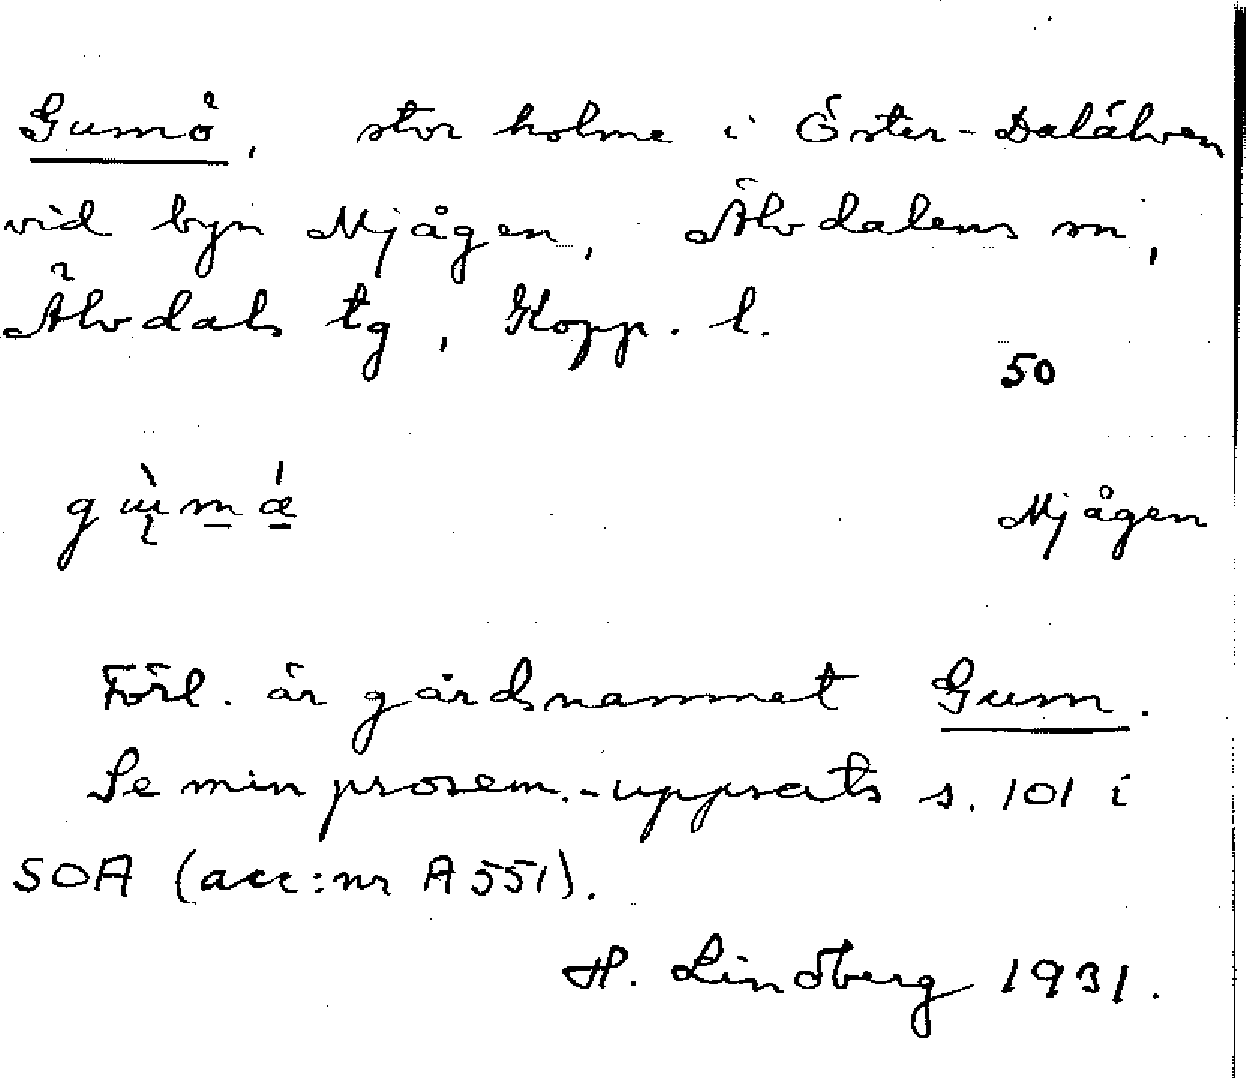 Gumö, stor holme i Öster-Dalälven
vid byn Mjågen, Älvdalens sn,
Älvdals tg, Kopp. l.
50
Mjågen
Förl. är gårdsnamnet Gum.
Se min prosem.-uppsats s. 101 i
SOA (acc:nr A 551).
H. Lindberg 1931.